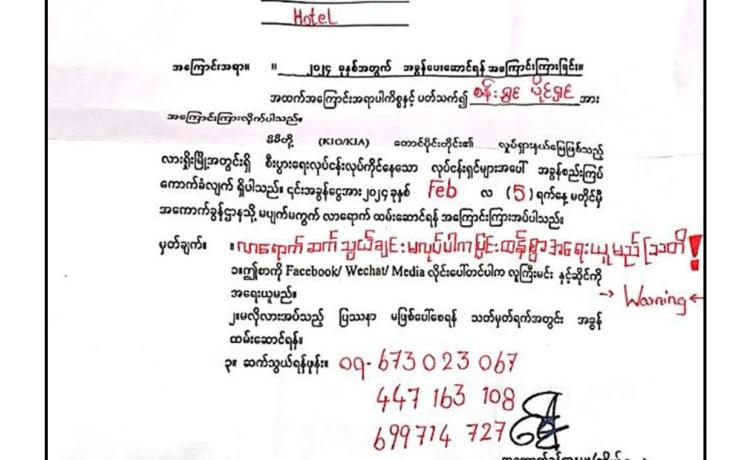 Hotel
အကြောင်းအရာ။ ။ ၂၀၂၄ ခုနှစ်အတွက် အခွန်ပေးဆောင်ရန် အကြောင်းကြားခြင်း။
အထက်အကြောင်းအရာပါကိစ္စနှင့် ပတ်သက်၍ စန်းရွှင် ပိုင်ရှင် အား
အကြောင်းကြားလိုက်ပါသည်။
မိမိတို့ (KIO/KIA) တောင်ပိုင်းတိုင်း၏ လှုပ်ရှားနယ်မြေဖြစ်သည့်
လားရှိုးမြို့အတွင်းရှိ စီးပွားရေးလုပ်ငန်းလုပ်ကိုင်နေသော လုပ်ငန်းရှင်များအပေါ် အခွန်စည်းကြပ်
ကောက်ခံလျက် ရှိပါသည်။ ၎င်းအခွန်ငွေအား ၂၀၂၄ ခုနှစ် Feb လ (5) ရက်နေ့ မတိုင်မှီ
အကောက်ခွန်ဌာနသို့ မပျက်မကွက် လာရောက် ထမ်းဆောင်ရန် အကြောင်းကြားအပ်ပါသည်။
မှတ်ချက်။ ။ လာရောက် ဆက်သွယ်ချင်းမလုပ်ပါက ပြင်းထန်စွာအရေးယူမည်
၁။ ဤစာကို Facebook/ Wechat/ Media လိုင်းပေါ်တင်ပါက လူကြီးမင်း နှင့်ဆိုင်ကို
အရေးယူမည်။ → Waening ←
၂။ မလိုလားအပ်သည့် ပြဿနာ မဖြစ်ပေါ်စေရန် သတ်မှတ်ရက်အတွင်း အခွန်
ထမ်းဆောင်ရန်။
၃။ ဆက်သွယ်ရန်ဖုန်း။ 09-673 023 067
447 163 108
699714 727